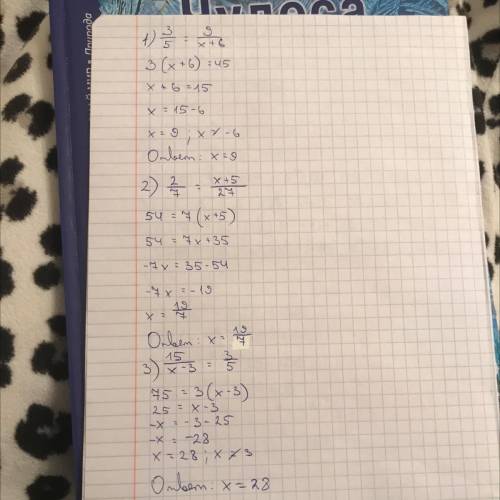 Чудеса
Природа
1) 3/5 = 9/x+6
3(x+6) = 45
x+6 = 15
x = 15-6
x = 9 ; x ≠ -6
Ответ: x = 9
2) 2/7 = x+5/27
54 = 7(x+5)
54 = 7x+35
-7x = 35-54
-7x = -19
x = 19/7
Ответ: x = 19/7
3) 15/x-3 = 3/5
75 = 3(x-3)
25 = x-3
-x = -3-25
-x = -28
x = 28 ; x ≠ 3
Ответ: x = 28